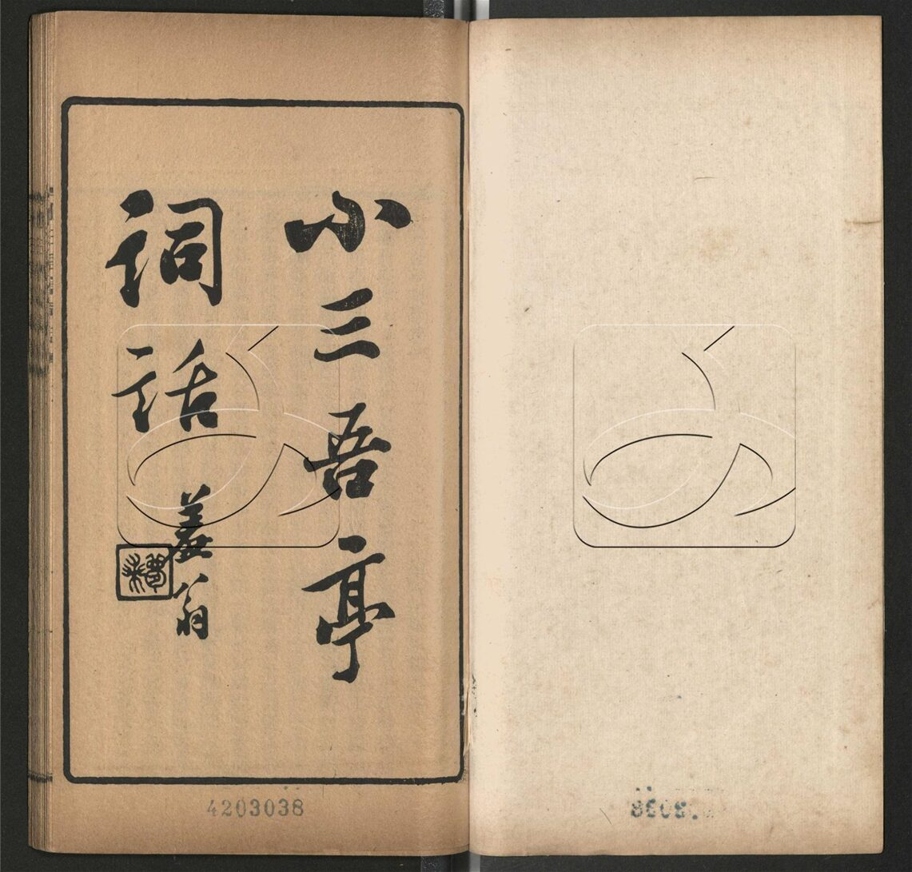 小三吾亭
詞話
羞翁
4203038